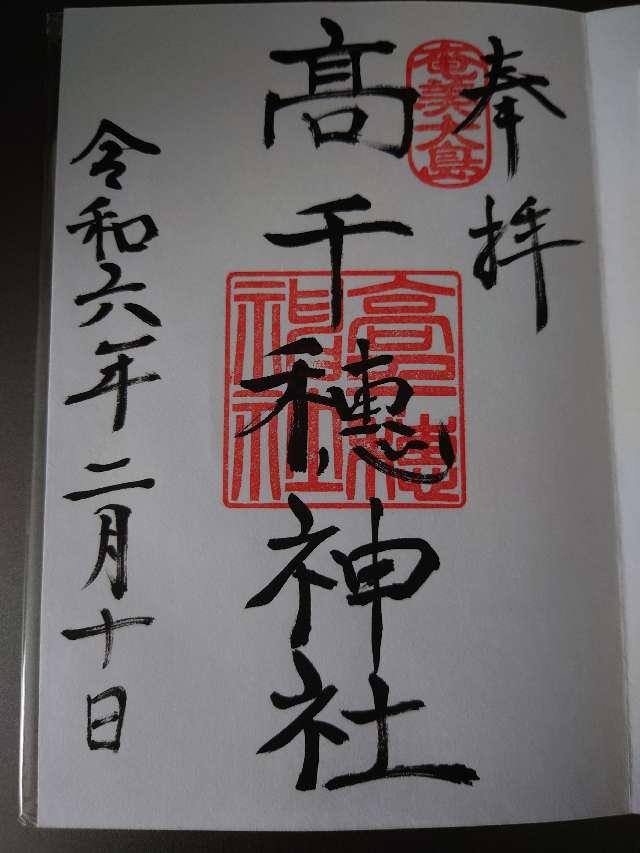 奉拝
奄美大島
髙千穂神社
高千穂神社
令和六年二月十日